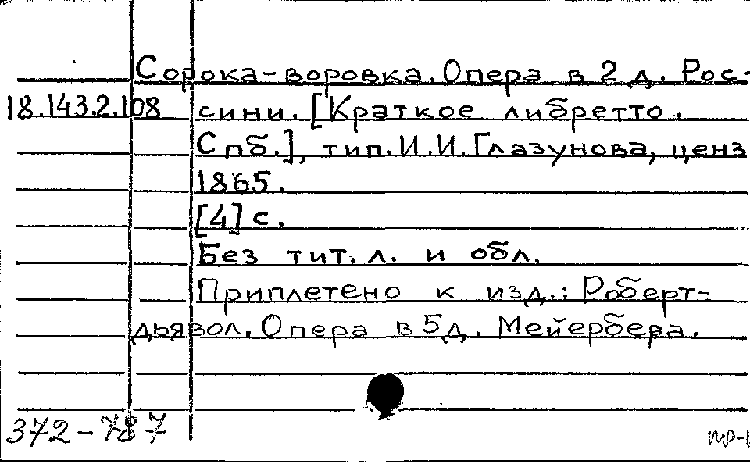 Сорока-воровка. Опера в 2 д. Рос-
18.143.2.108 сини. [Краткое либретто.
Спб.], тип. И.И. Глазунова, ценз
1865.
[4] с.
Без тит. л. и обл.
Приплетено к изд.: Роберт-
дьявол. Опера в 5 д. Мейербера.
372-787